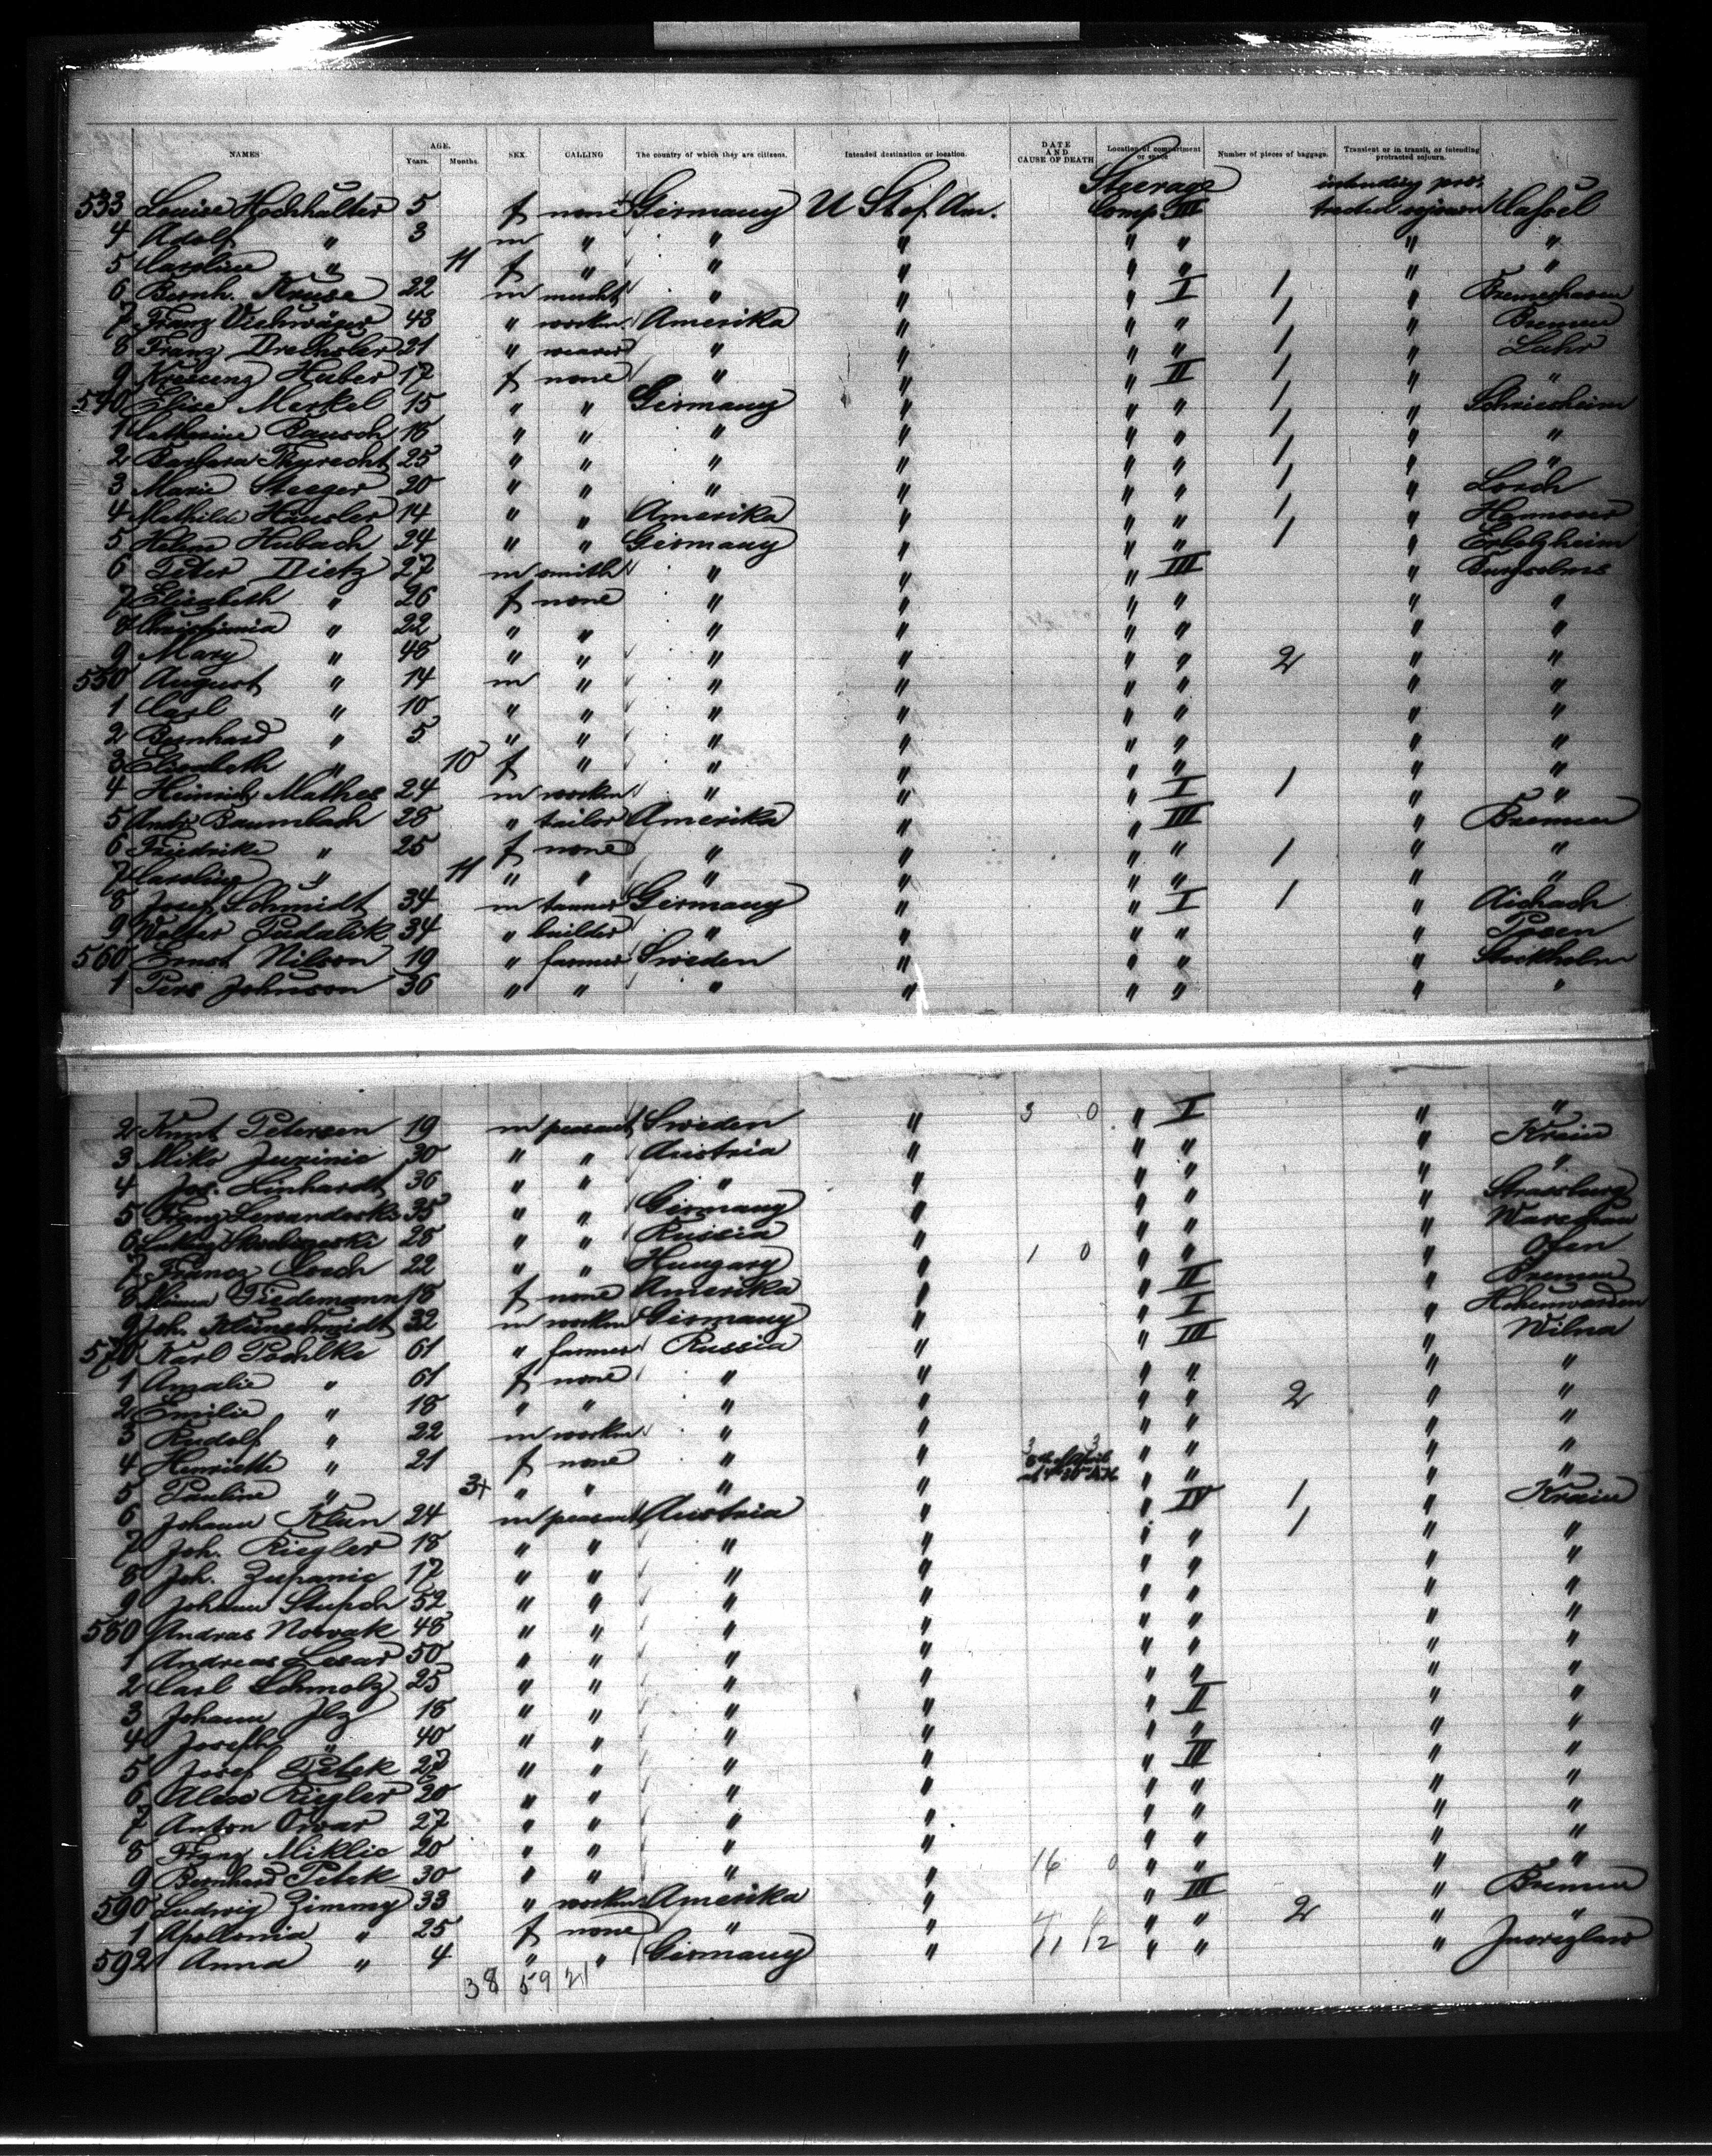 NAMES AGE. Years. Months. SEX. CALLING The country of which they are citizens. Intended destination or location. DATE AND CAUSE OF DEATH Location of compartment or space Number of pieces of baggage. Transient or in transit, or intending protracted sojourn.
Steerage intending pro-
533 Louise Hochhalter 5 f none Germany U St of Am. Comp. III tracted sojourn Cassel
4 Adolf " 3 m " " " " " " "
5 Caroline " 11 f " " " " " " "
6 Bernh. Kruse 22 m mercht " " " I 1 " Bremerhaven
7 Franz Viehweger 43 " workm. Amerika " " " 1 " Bremen
8 Franz Drechsler 21 " weaver " " " " 1 " Lahr
9 Kreszenz Huber 17 f none " " " II 1 " "
540 Elise Merkel 15 " " Germany " " " 1 " Schriesheim
1 Catharine Bausch 18 " " " " " " 1 " "
2 Barbara Thyrecht 25 " " " " " " 1 " "
3 Marie Steeger 20 " " " " " " 1 " Lorch
4 Mathilde Häusler 14 " " Amerika " " " 1 " Hannover
5 Helene Hubach 24 " " Germany " " " 1 "
6 Peter Dietz 27 m smith " " " III " Burgsolms
7 Elizabeth " 26 f none " " " " " "
8 " 22 " " " " " " " "
9 Mary " 48 " " " " " " 2 " "
550 August " 14 m " " " " " " "
1 Carl " 10 " " " " " " " "
2 Bernhard " 5 " " " " " " " "
3 Elisabeth " 10 f " " " " " " "
4 Heinrich Mathes 24 m workm " " " I 1 " "
5 Andr. Baumbach 28 " tailor Amerika " " III " Bremen
6 Friedrike " 25 f none " " " " 1 " "
7 Caroline " 11 " " " " " " " "
8 Josef Schmidt 34 m tanner Germany " " I 1 " Aichach
9 Walter 34 " builder " " " " " Posen
560 Ernst Nilson 19 " farmer Sweden " " " " Stockholm
1 Pers Johnson 36 " " " " " " " "
2 Knut Petersen 19 m peasant Sweden " 3 0 " I " "
3 Miko Jurinic 30 " " Austria " " " " Krain
4 Jos. Linhardt 36 " " " " " " " "
5 Franz Lewandoski 35 " " Germany " " " " Strassburg
6 25 " " Russia " " " " Warschau
7 Franz Losch 22 " " Hungary " 1 0 " " " Ofen
8 Minna Tiedemann 18 f none Amerika " " II " Bremen
9 Joh. 32 m workm Germany " " I "
570 Karl Pochlke 61 " farmer Russia " " III " Wilna
1 Amalie " 61 f none " " " " " "
2 Emilie " 18 " " " " " " 2 " "
3 Rudolf " 22 m workm " " " " " "
4 Henriette " 21 f none " " 3 3 " " " "
5 Pauline " 3+ " " " " 8th of April " " " "
6 Johann Klun 24 m peasant Austria " " IV 1 " Krain
7 Joh. Riegler 18 " " " " " " 1 " "
8 Joh. Zupanic 17 " " " " " " " "
9 Johann 52 " " " " " " " "
580 Andras Novak 48 " " " " " " " "
1 Andreas Lesar 50 " " " " " " " "
2 Carl Schmolz 25 " " " " " " " "
3 Johann Ilz 18 " " " " " II " "
4 Joseph " 40 " " " " " " " "
5 Josef Petek 27 " " " " " III " "
6 Alois Riegler 20 " " " " " " " "
7 Anton 27 " " " " " " " "
8 Franz Miklic 20 " " " " " " " "
9 Bernhard Petek 30 " " " " 16 0 " " " "
590 Ludwig Zimmy 33 " workm Amerika " " III " Bremen
1 Apollonia " 25 f none " " 4 " " 2 " "
592 Anna " 4 " " Germany " 11 12 " " "
38 59 21